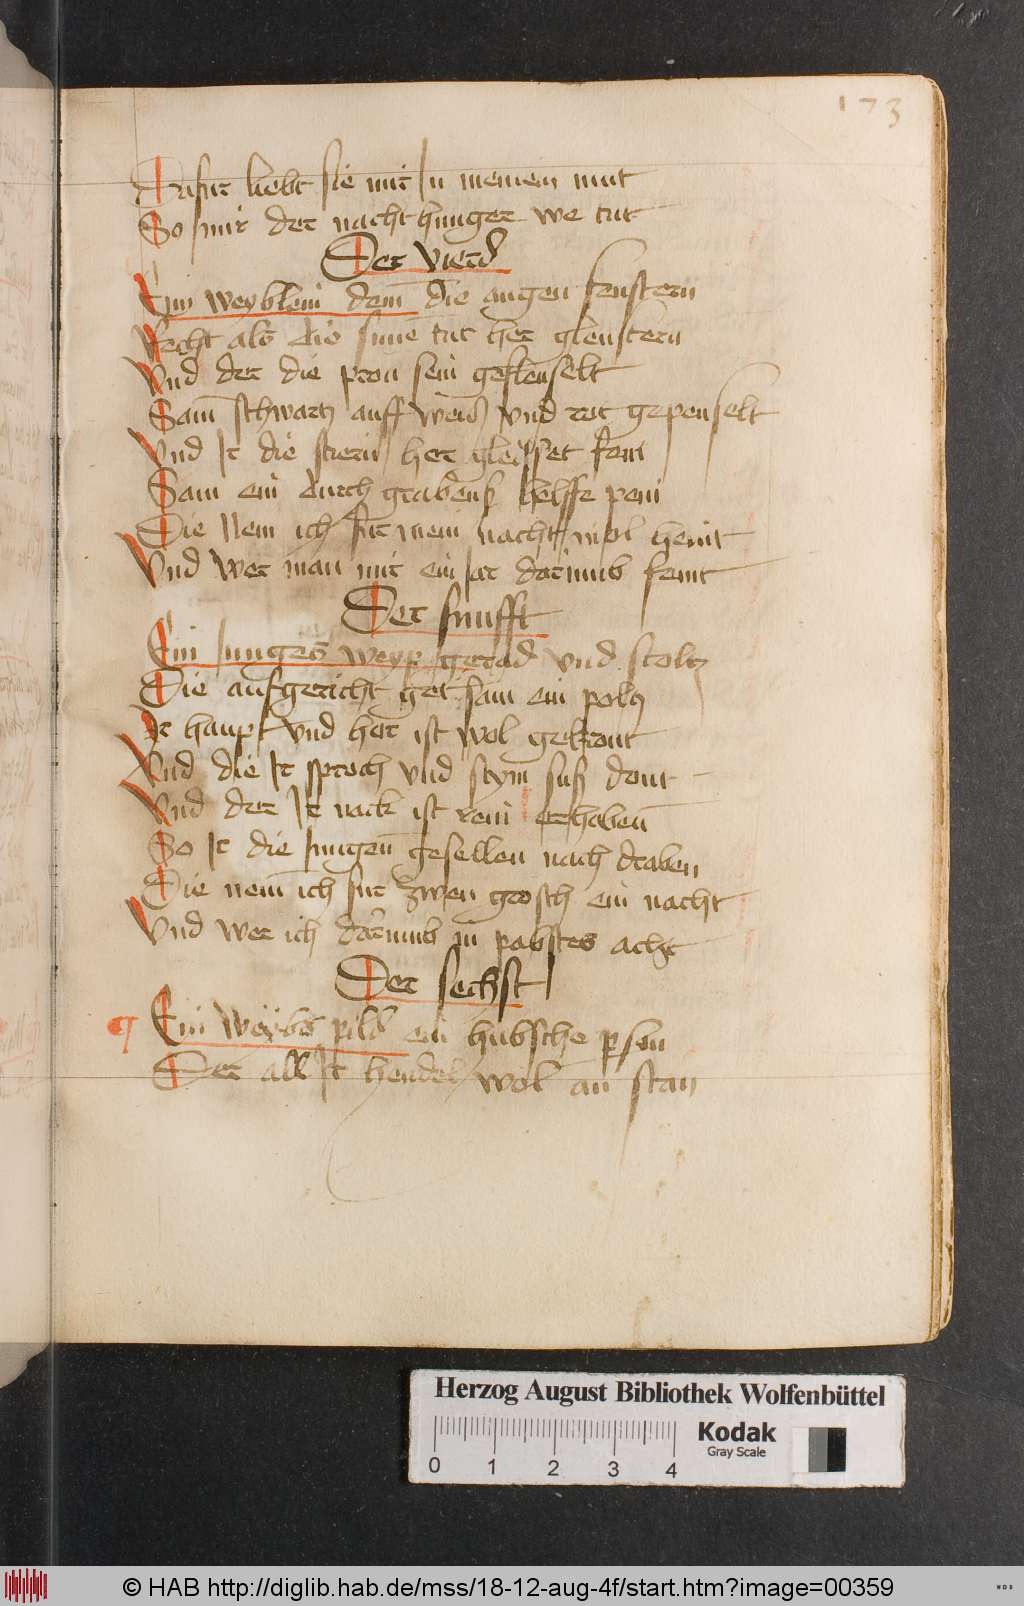 173
Dafur liebt sie mir In meinem mut
So mir der nacht hunger we tut
Der vierd
Ein weyblein dem die augen fenstern
Recht als die sunne tut her glenstern
Vnd der die pron sein geflenselt
Sam schwartz auff weis vnd rot gepenselt
Vnd Ir die stiern her gleisset fein
Sam ein durch graben helffe pein
Die Nem ich fur mein nacht mol heint
Vnd wer man mir ein Jar darumb feint
Der funfft
Ein Junges weyp gerad vnd stoltz
Die aufgericht get sam ein poltz
Ir haupt vnd hor ist wol gekront
Vnd die Ir sproch vnd stym suß dont
Vnd der Ir nack ist rein erhaben
So Ir die Jungen gesellen nach draben
Die nem ich fur zwen grosch ein nacht
Vnd wer ich darumb in pabstes acht
Der sechst
Ein weybs pild ein hubsche person
Der all Ir hendel wol an stan
Herzog August Bibliothek Wolfenbüttel
Kodak
Gray Scale
0 1 2 3 4
© HAB http://diglib.hab.de/mss/18-12-aug-4f/start.htm?image=00359